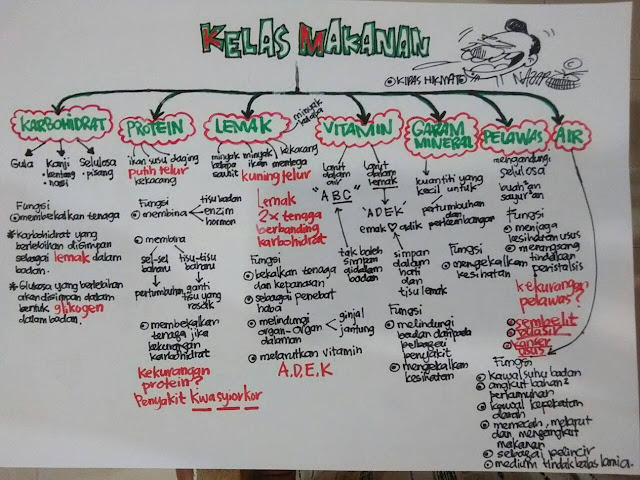 KELAS MAKANAN
©KIPAS HIKMAT
KARBOHIDRAT
Gula
Kanji
-kentang
-nasi
Selulosa
-pisang
Fungsi
membekalkan tenaga
* Karbohidrat yang
berlebihan disimpan
sebagai lemak dalam
badan.
* Glukosa yang berlebihan
akan disimpan dalam
bentuk glikogen
dalam badan.
PROTEIN
ikan susu daging
putih telur
kekacang
Fungsi
membina
tisu badan
enzim
hormon
membina
sel-sel
baharu
pertumbuhan
tisu-tisu
baharu
ganti
tisu yang
rosak
membekalkan
tenaga jika
kekurangan
karbohidrat
Kekurangan
protein?
Penyakit Kwasyiorkor
LEMAK
minyak
kelapa
minyak
kelapa
sawit
minyak
ikan
kekacang
mentega
kuning telur
Lemak
2x tenaga
berbanding
karbohidrat
Fungsi
bekalkan tenaga
dan kepanasan
sebagai penebat
haba
melindungi
organ-organ
dalaman
ginjal
jantung
melarutkan vitamin
A,D,E,K
VITAMIN
larut
dalam
air
"ABC"
tak boleh
simpan
didalam
badan
larut
dalam
lemak
"ADEK"
emak ♡ adik
simpan
dalam
hati
dan
tisu lemak
Fungsi
melindungi
badan daripada
pelbagai
penyakit
mengekalkan
kesihatan
GARAM
MINERAL
kuantiti yang
kecil untuk
pertumbuhan
dan
perkembangan
Fungsi
mengekalkan
kesihatan
PELAWAS
mengandungi
selulosa
buah"an
sayur"an
Fungsi
menjaga
kesihatan usus
merangsang
tindakan
peristalsis
kekurangan
pelawas?
sembelit
buasir
kanser
usus
AIR
Fungsi
kawal suhu badan
angkut bahan²
perkumuhan
kawal kepekatan
darah
memecah, melarut
dan mengangkut
makanan
sebagai pelincir
medium tindak balas kimia.